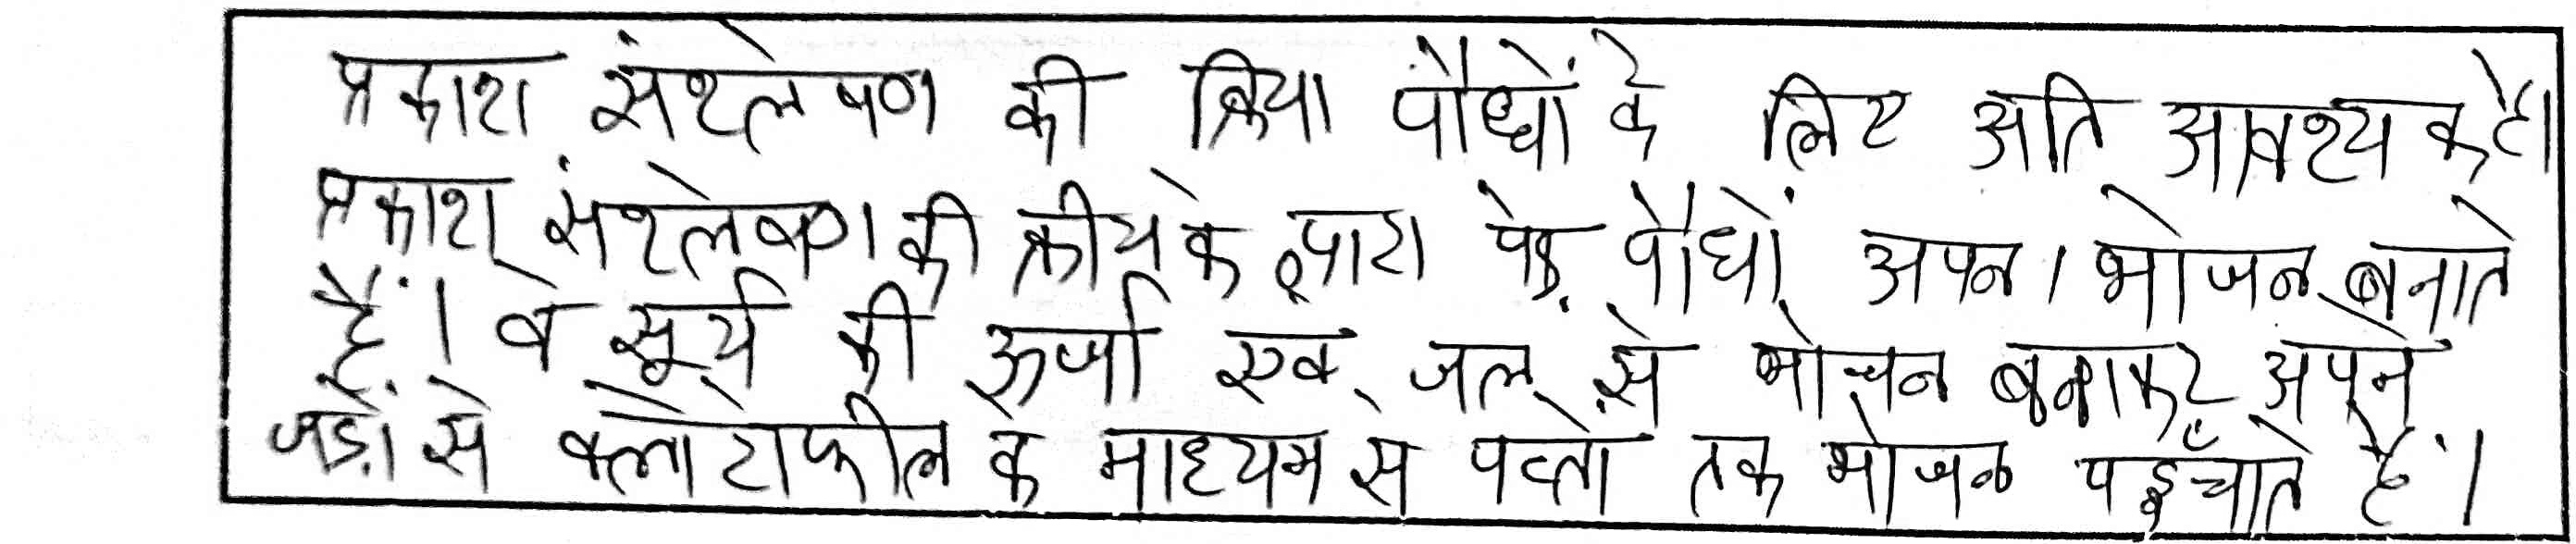 प्रकाश संश्लेषण की क्रिया पौधों के लिए अति आवश्यक है।
प्रकाश संश्लेषण की क्रीये के द्वारा पेड़ पौधों अपना भोजन बनाते
हैं। वे सूर्य की ऊर्जा एवं जल से भोजन बनाकर अपने
जड़ों से क्लोरोफील के माध्यम से पत्तों तक भोजन पहुँचाते हैं।